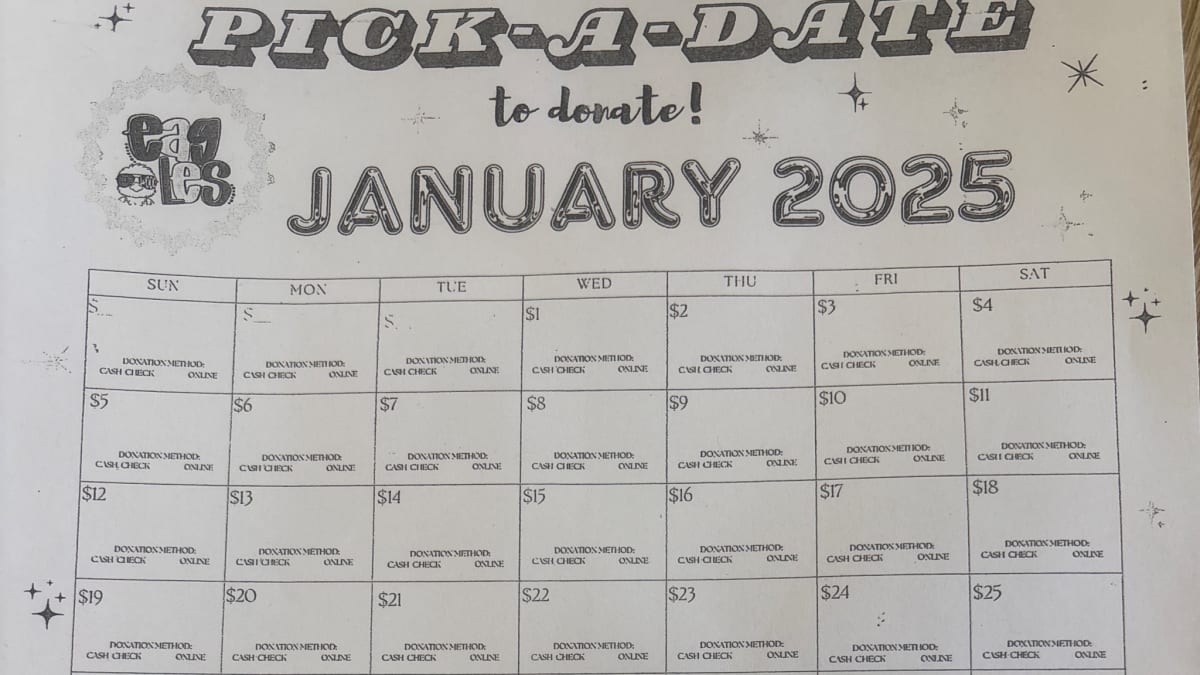 PICK-A-DATE
to donate!
eagles
JANUARY 2025
SUN MON TUE WED THU FRI SAT
$__ $__ $ $1 $2 $3 $4
DONATION METHOD: DONATION METHOD: DONATION METHOD: DONATION METHOD: DONATION METHOD: DONATION METHOD: DONATION METHOD:
CASH CHECK ONLINE CASH CHECK ONLINE CASH CHECK ONLINE CASH CHECK ONLINE CASH CHECK ONLINE CASH CHECK ONLINE CASH CHECK ONLINE
$5 $6 $7 $8 $9 $10 $11
DONATION METHOD: DONATION METHOD: DONATION METHOD: DONATION METHOD: DONATION METHOD: DONATION METHOD: DONATION METHOD:
CASH CHECK ONLINE CASH CHECK ONLINE CASH CHECK ONLINE CASH CHECK ONLINE CASH CHECK ONLINE CASH CHECK ONLINE CASH CHECK ONLINE
$12 $13 $14 $15 $16 $17 $18
DONATION METHOD: DONATION METHOD: DONATION METHOD: DONATION METHOD: DONATION METHOD: DONATION METHOD: DONATION METHOD:
CASH CHECK ONLINE CASH CHECK ONLINE CASH CHECK ONLINE CASH CHECK ONLINE CASH CHECK ONLINE CASH CHECK ONLINE CASH CHECK ONLINE
$19 $20 $21 $22 $23 $24 $25
DONATION METHOD: DONATION METHOD: DONATION METHOD: DONATION METHOD: DONATION METHOD: DONATION METHOD: DONATION METHOD:
CASH CHECK ONLINE CASH CHECK ONLINE CASH CHECK ONLINE CASH CHECK ONLINE CASH CHECK ONLINE CASH CHECK ONLINE CASH CHECK ONLINE